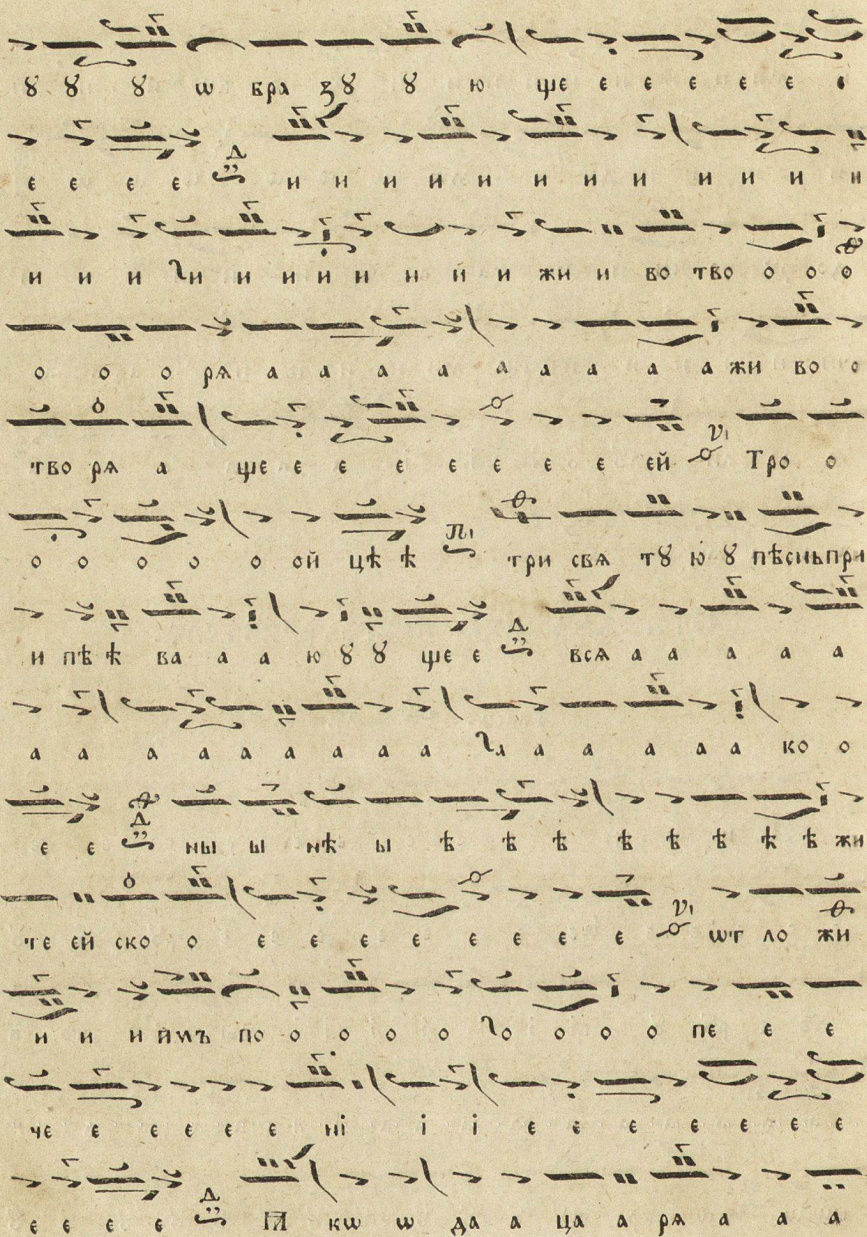 ꙋ ꙋ ꙋ ѡ бра зꙋ ꙋ ю ще е е е е е е
е е е е и и и и и и и и и и и и
и и и и и и и и и и жи и во тво о о о
о о о рѧ а а а а а а а а а жи во о
тво рѧ а ще е е е е е е е ей Тро о
о о о о о ой цѣ ѣ три свѧ тꙋ ю ꙋ пѣснь при
и пѣ ѣ ва а а ю ꙋ ꙋ ще е всѧ а а а а а
а а а а а а а а а а а а а а ко о
е е ны ы нѣ ы ѣ ѣ ѣ ѣ ѣ ѣ ѣ ѣ жи
те ей ско о е е е е е е е е ѡт ло жи
и и и имъ по о о о о о о о о пе е е
че е е е е е ні і і е е е е е е е
е е е е Ꙗ кѡ ѡ да а ца а рѧ а а а